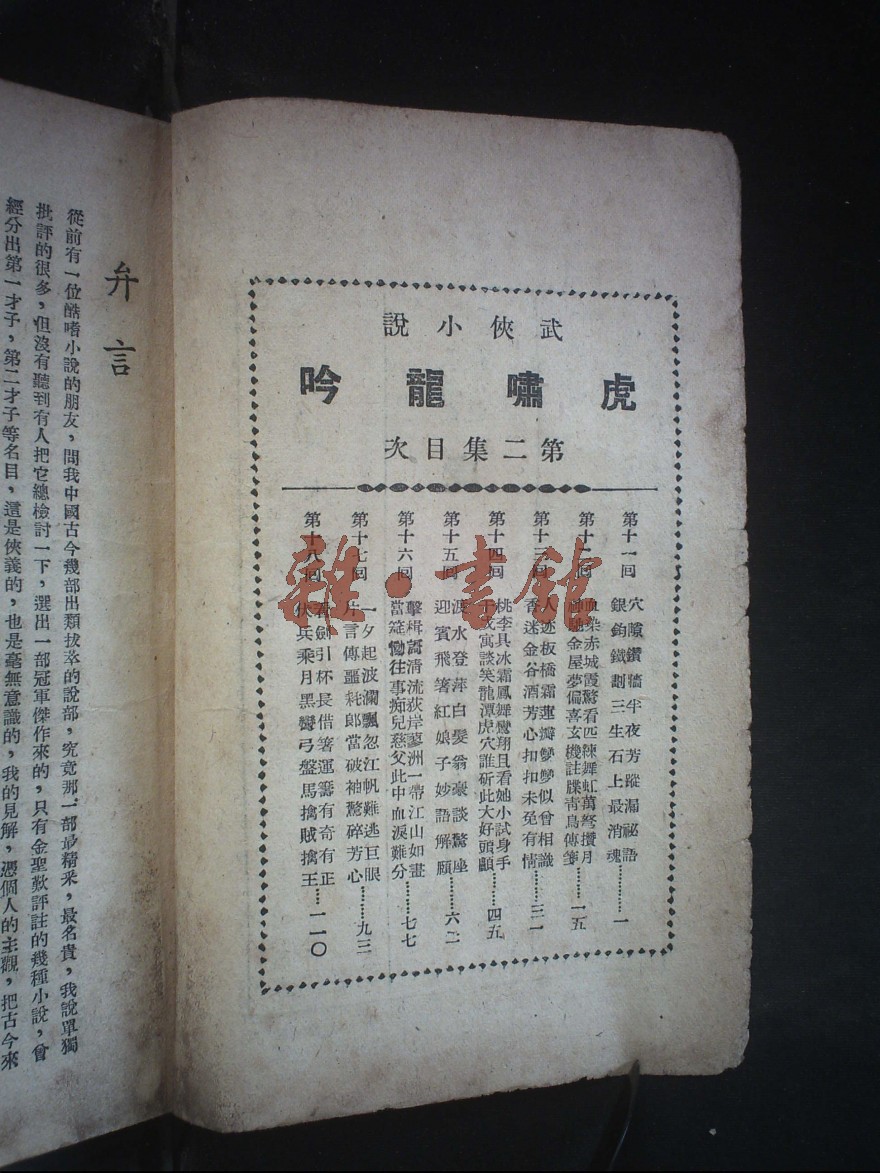 武俠小說
虎嘯龍吟
第二集目次
第十一回
穴隙鑽牆半夜芳蹤漏祕語
銀鈎鐵劃三生石上最消魂………一
第十二回
血染赤城霞驚看匹練舞虹萬弩攢月
神馳金屋夢偏喜玄機註牒青鳥傳箋……一五
第十三回
人迹板橋霜蓮瓣孿孿似曾相識
香迷金谷酒芳心扣扣未免有情……三一
第十四回
桃李具冰霜鳳舞鸞翔且看她小試身手
干戈寓談笑龍潭虎穴誰斫此大好頭顱……四五
第十五回
渡水登萍白髮翁豪談驚座
迎賓飛箸紅娘子妙語解頤……六二
第十六回
擊楫話清流荻岸蓼洲一帶江山如畫
當筵慟往事痴兒慈父此中血淚難分……七七
第十七回
一夕起波瀾飄忽江帆難逃巨眼
片言傳噩耗郎當破袖驚碎芳心……九三
第十八回
看劍引杯長借箸運籌有奇有正
伏兵乘月黑彎弓盤馬擒賊擒王……一一〇
弁言
從前有一位酷嗜小說的朋友，問我中國古今幾部出類拔萃的說部，究竟那一部最精采，最名貴，我說單獨
批評的很多，但沒有聽到有人把它總檢討一下，選出一部冠軍傑作來的，只有金聖歎評註的幾種小說，曾
經分出第一才子，第二才子等名目，這是俠義的，也是毫無意識的，我的見解，憑個人的主觀，把古今來
雜·書館